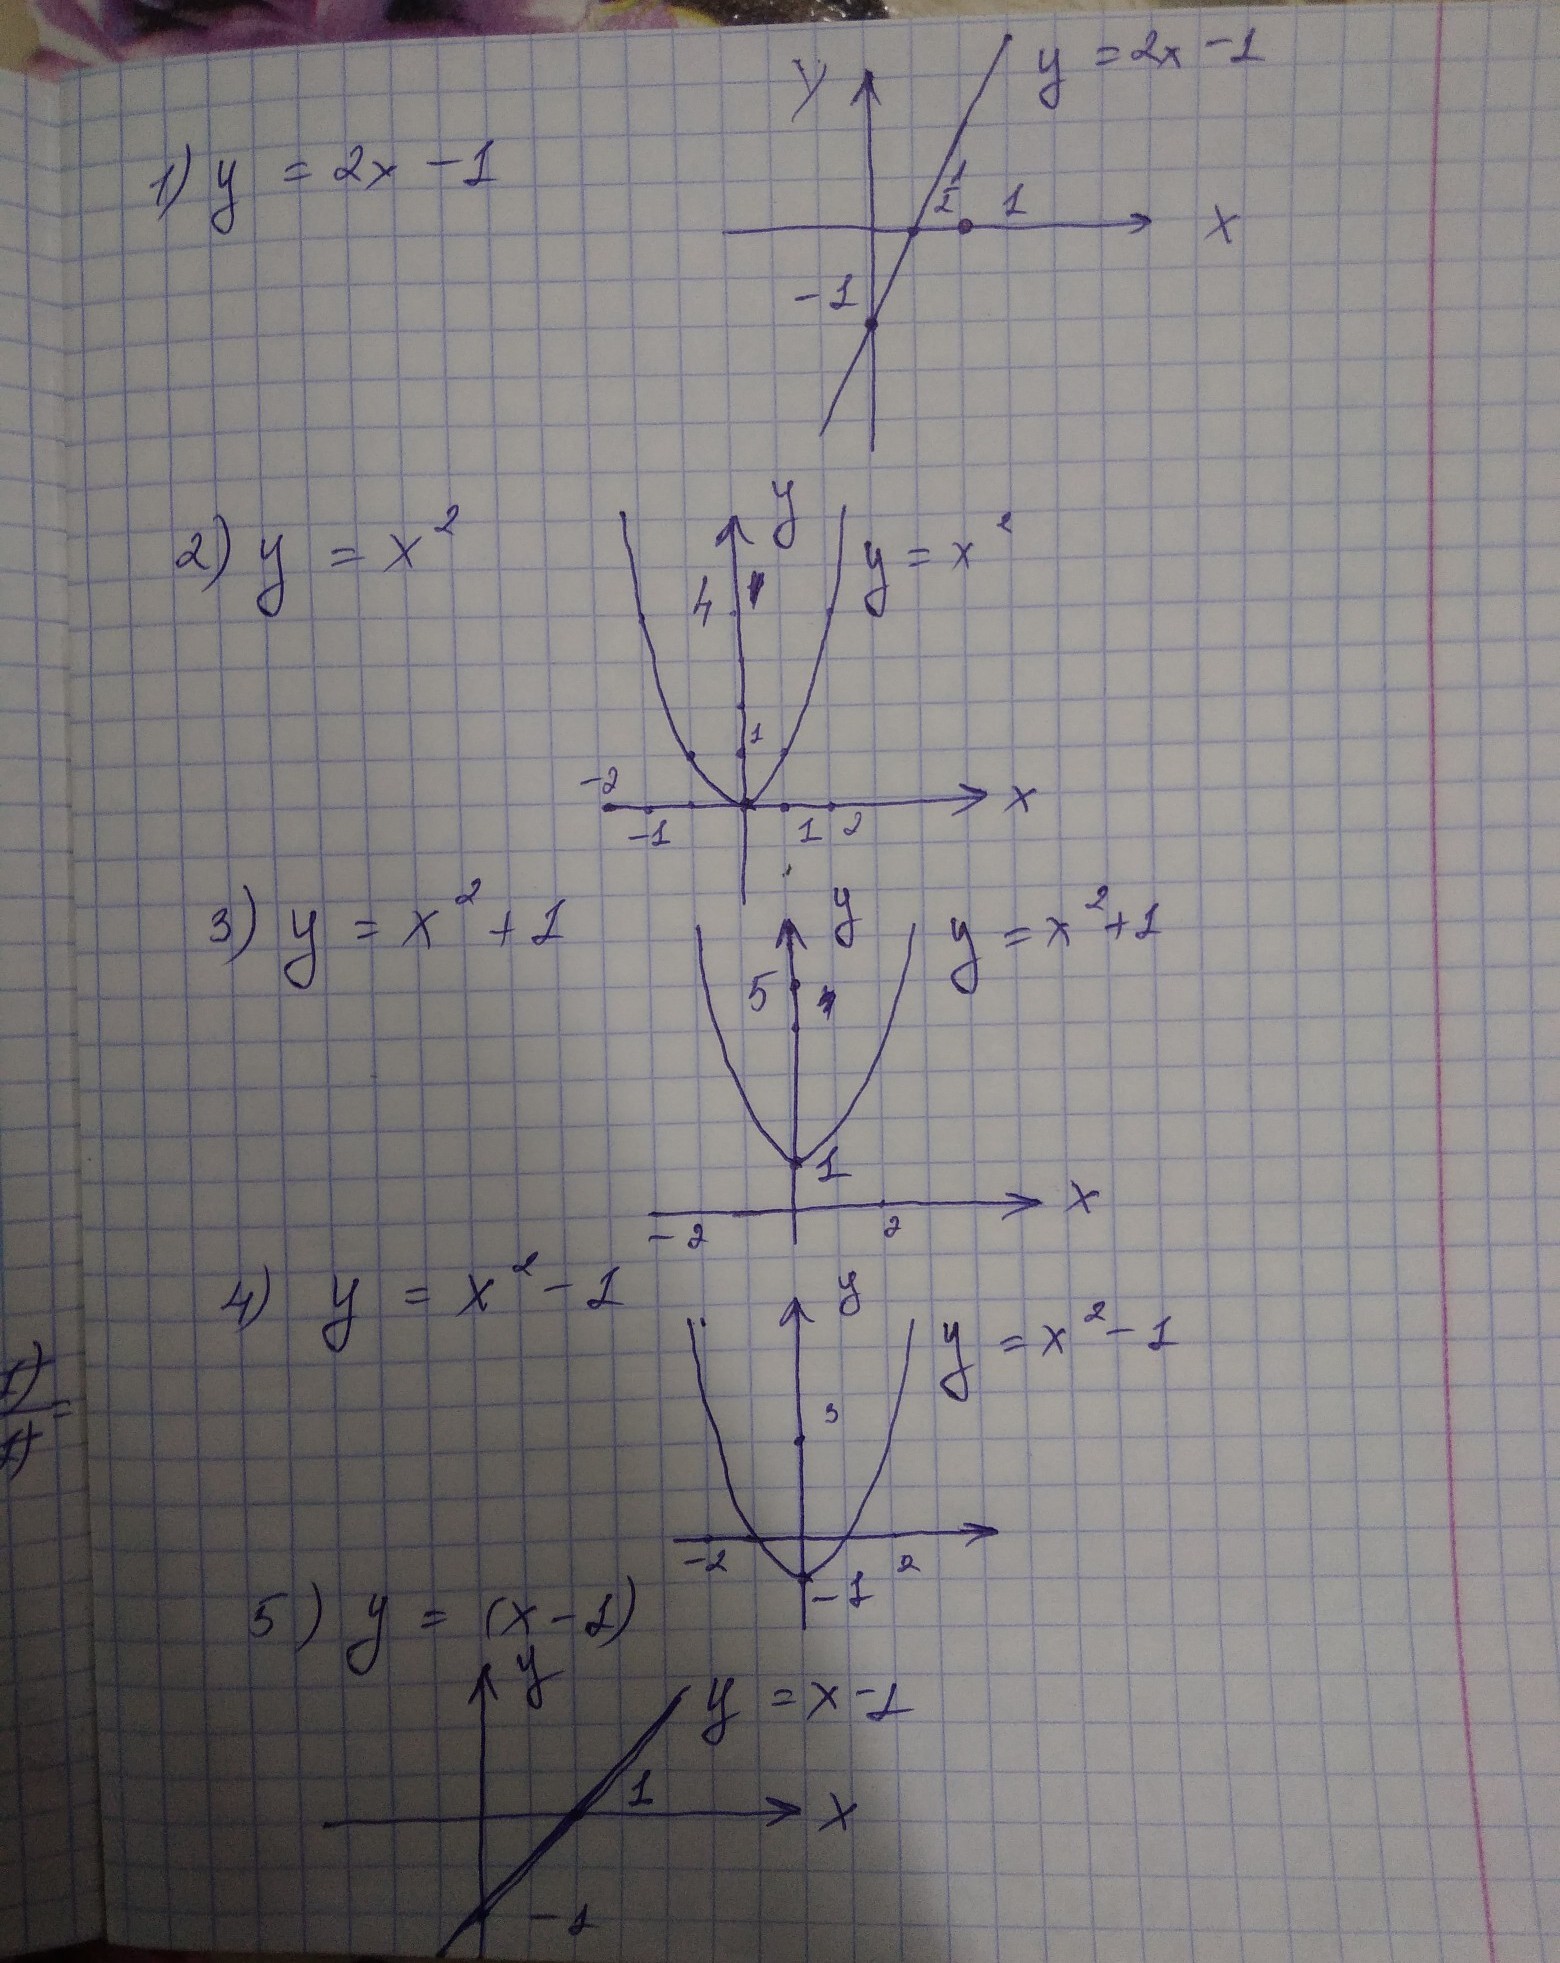 y = 2x - 1
y
1) y = 2x - 1
1/2 1
x
-1
y
2) y = x²
y = x²
4
1
-2
x
-1 1 2
y
3) y = x² + 1
y = x² + 1
5
1
x
-2 2
4) y = x² - 1
y
y = x² - 1
3
-2 2
-1
5) y = (x - 1)
y
y = x - 1
1
x
-1